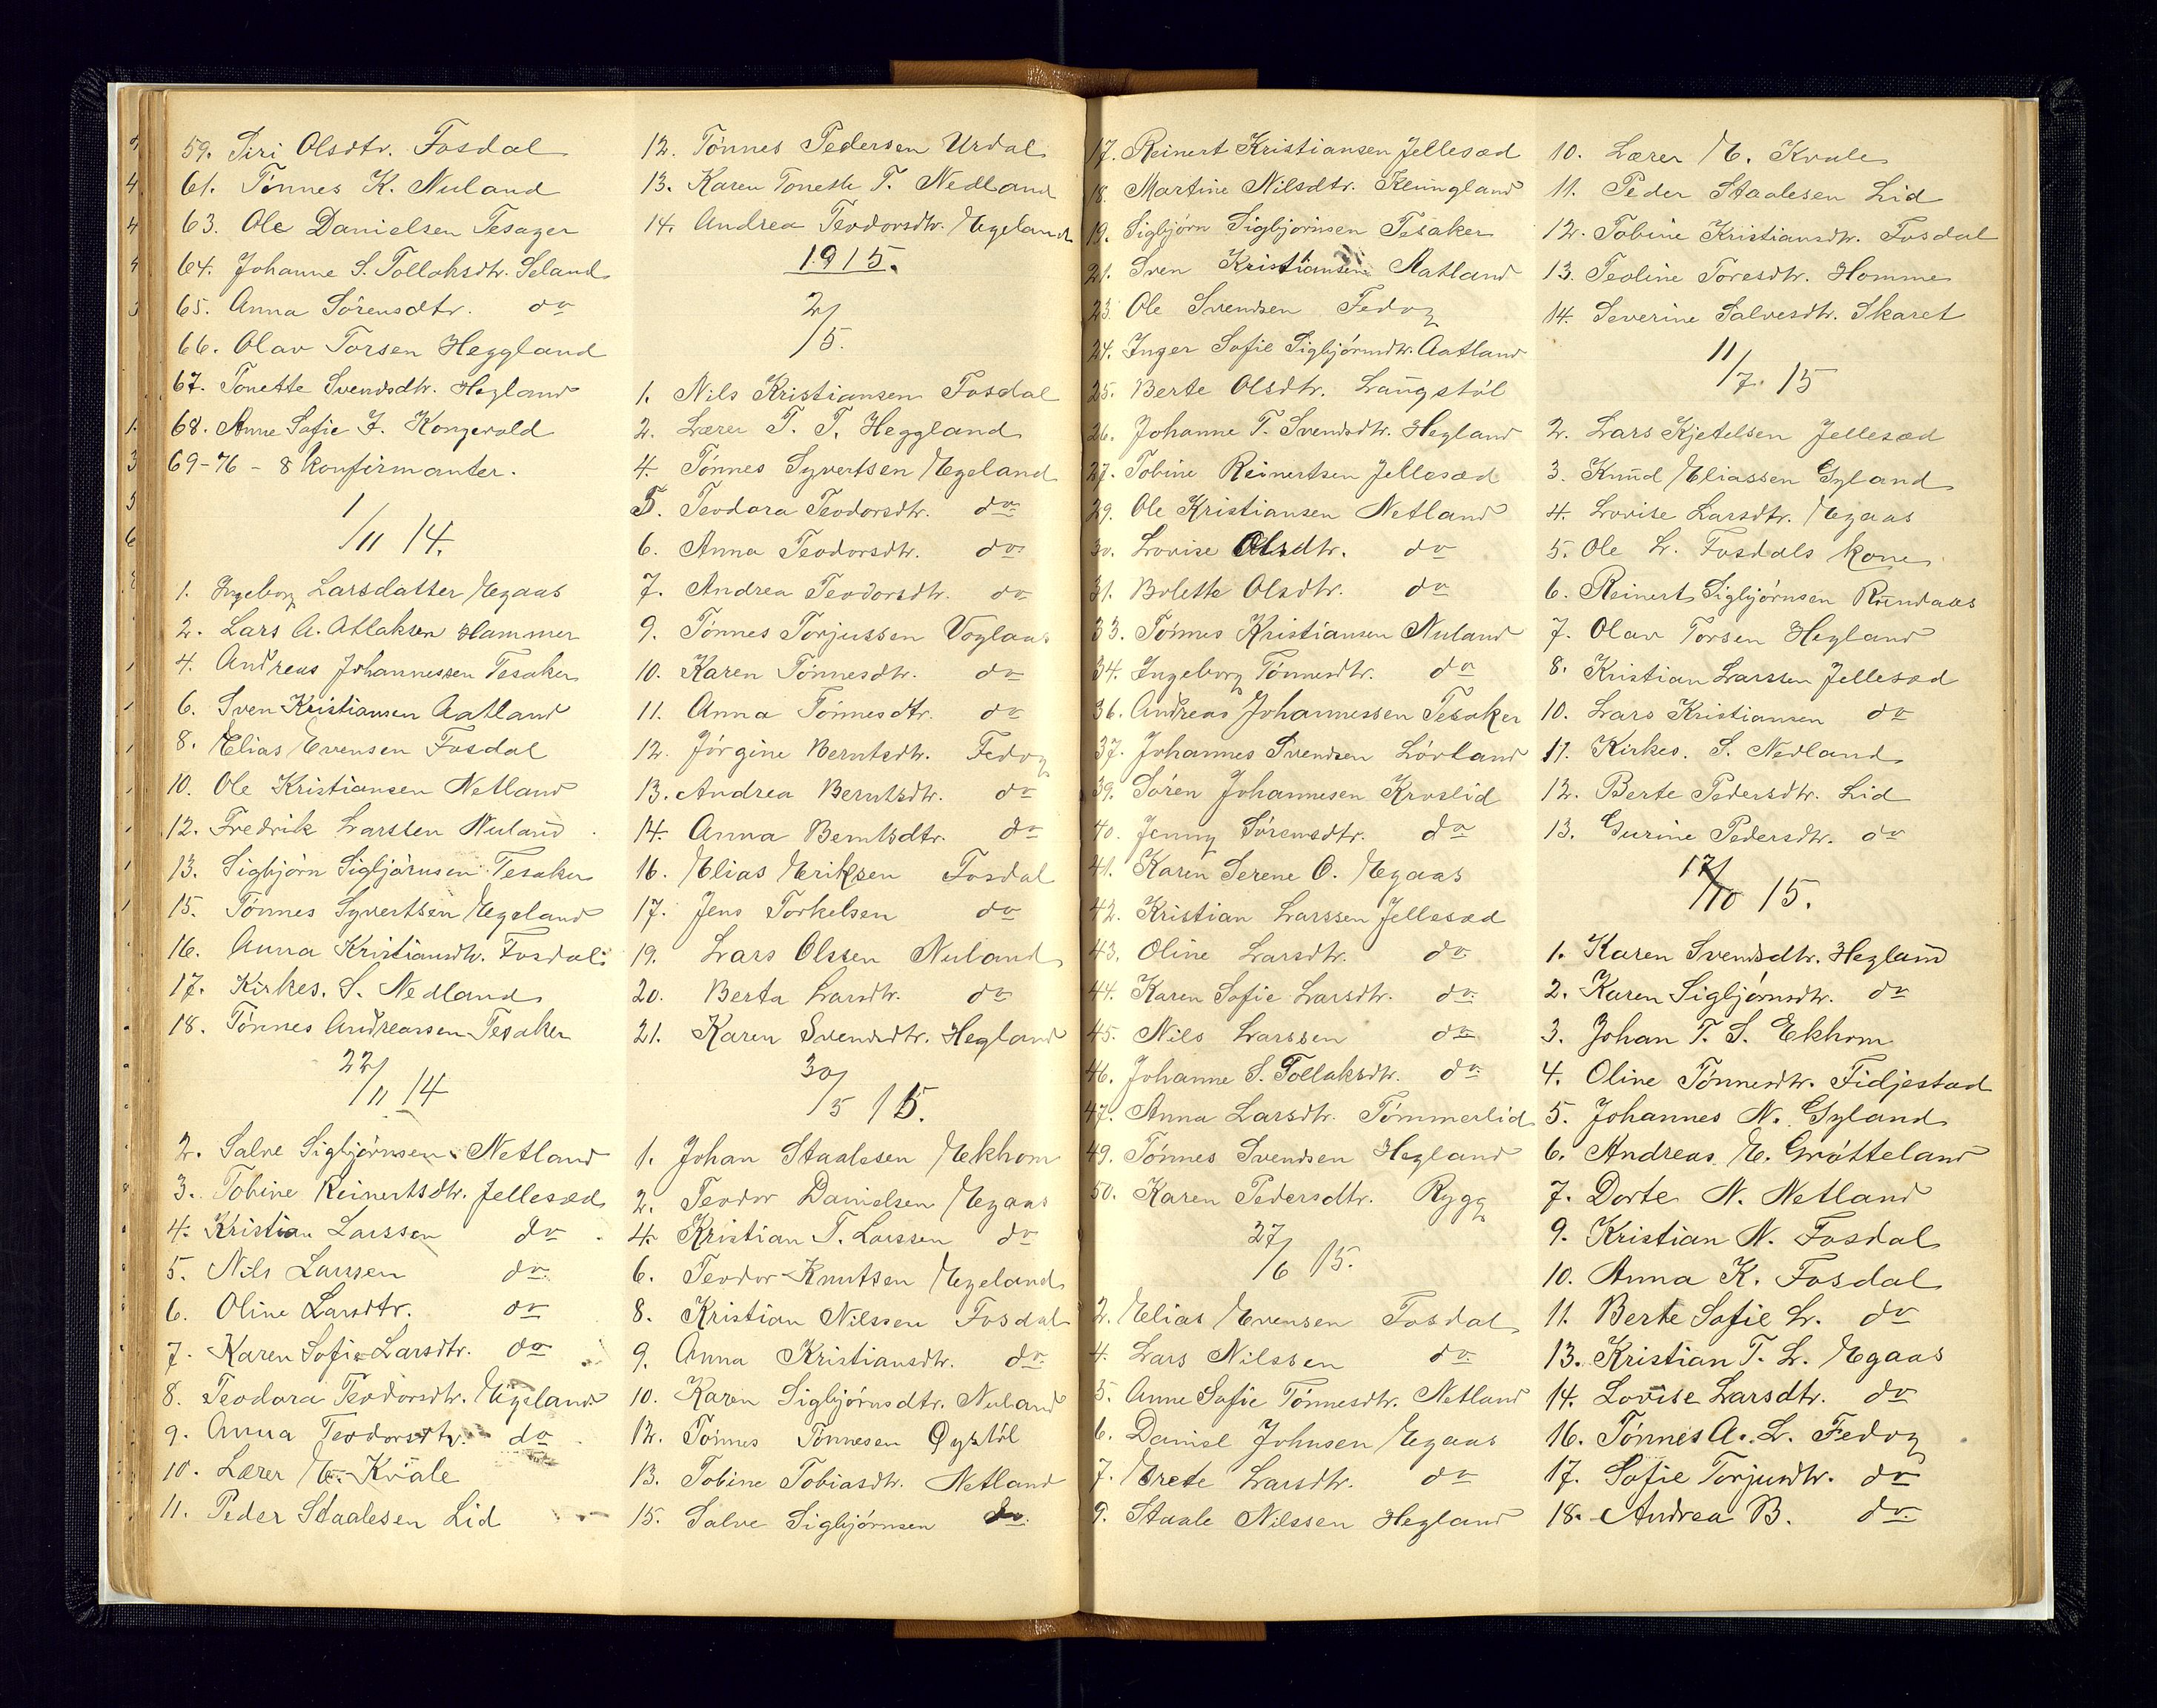 59. Siri Olsdtr. Fosdal
61. Tönnes K. Nuland
63. Ole Danielsen Tesager
64. Johanne S. Tollaksdtr. Seland
65. Anna Sörensdtr. do
66. Olav Torsen Heggland
67. Tonette Svendsdtr. Hegland
68. Anne Sofie J. Kongevold
69-76 - 8 konfirmanter.
1/11 14.
1. Ingeborg Larsdatter Egaas
2. Lars A. Atlaksen Hammer
4. Andreas Johannessen Tesaker
6. Sven Kristiansen Aatland
8. Elias Evensen Fosdal
10. Ole Kristiansen Netland
12. Fredrik Larssen Nuland
13. Sigbjörn Sigbjörnsen Tesaker
15. Tönnes Syvertsen Egeland
16. Anna Kristiansdtr. Fosdal
17. Kirkes. S. Nedland
18. Tönnes Andreassen Tesaker
22/11 14
2. Salve Sigbjörnsen Netland
3. Tobine Reinertsdtr. Jellesæd
4. Kristian Larssen do
5. Nils Larssen do
6. Oline Larsdtr. do
7. Karen Sofie Larsdtr. do
8. Teodora Teodorsdtr. Egeland
9. Anna Teodorsdtr. do
10. Lærer E. Kvale
11. Peder Staalesen Lid
12. Tönnes Pedersen Urdal
13. Karen Tonette T. Nedland
14. Andrea Teodorsdtr. Egeland
1915.
2/5.
1. Nils Kristiansen Fosdal
2. Lærer T. T. Heggland
4. Tönnes Syvertsen Egeland
5. Teodora Teodorsdtr. do
6. Anna Teodorsdtr. do
7. Andrea Teodorsdtr. do
9. Tönnes Torjussen Voglaas
10. Karen Tönnesdtr. do
11. Anna Tönnesdtr. do
12. Jörgine Berntsdtr. Fedog
13. Andrea Berntsdtr. do
14. Anna Berntsdtr. do
16. Elias Eriksen Fosdal
17. Jens Torkelsen do
19. Lars Olssen Nuland
20. Berta Larsdtr. do
21. Karen Svendsdtr. Hegland
30/5 15.
1. Johan Staalesen Ekhom
2. Teodor Danielsen Egaas
4. Kristian T. Larssen do
6. Teodor Knutsen Egeland
8. Kristian Nilssen Fosdal
9. Anna Kristiansdtr. do
10. Karen Sigbjörnsdtr. Nuland
12. Tönnes Tönnesen Öystöl
13. Tobine Tobiasdtr. Netland
15. Salve Sigbjörnsen do
17. Reinert Kristiansen Jellesæd
18. Martine Nilsdtr. Klungland
19. Sigbjörn Sigbjörnsen Tesaker
21. Sven Kristiansen Aatland
23. Ole Svendsen Fedog
24. Inger Sofie Sigbjörnsdtr. Aatland
25. Berte Olsdtr. Langstöl
26. Johanne T. Svendsdtr. Hegland
27. Tobine Reinertsen Jellesæd
29. Ole Kristiansen Netland
30. Lovise Olsdtr. do
31. Bolette Olsdtr. do
33. Tönnes Kristiansen Nuland
34. Ingeborg Tönnesdtr. do
36. Andreas Johannessen Tesaker
37. Johannes Svendsen Lövland
39. Sören Johannesen Kroslid
40. Jenny Sörensdtr. do
41. Karen Serene O. Egaas
42. Kristian Larssen Jellesæd
43. Oline Larsdtr. do
44. Karen Sofie Larsdtr. do
45. Nils Larssen do
46. Johanne S. Tollaksdtr. do
47. Anna Larsdtr. Tömmerlid
49. Tönnes Svendsen Hegland
50. Karen Pedersdtr. Rygg
27/6 15.
2. Elias Evensen Fosdal
4. Lars Nilssen do
5. Anne Sofie Tönnesdtr. Netland
6. Daniel Johnsen Egaas
7. Grete Larsdtr. do
9. Staale Nilssen Hegland
10. Lærer E. Kvale
11. Peder Staalesen Lid
12. Tobine Kristiansdtr. Fosdal
13. Teoline Toresdtr. Homme
14. Severine Salvesdtr. Skaret
11/7. 15
2. Lars Kjetelsen Jellesæd
3. Knud Eliassen Gyland
4. Lovise Larsdtr. Egaas
5. Ole L. Fosdals kone
6. Reinert Sigbjörnsen Rundaas
7. Olav Torsen Hegland
8. Kristian Larssen Jellesæd
10. Lars Kristiansen do
11. Kirkes. S. Nedland
12. Berte Pedersdtr. Lid
13. Gurine Pedersdtr. do
17/10 15.
1. Karen Svendsdtr. Hegland
2. Karen Sigbjörnsdtr. do
3. Johan T. S. Ekhom
4. Oline Tönnesdtr. Fidjestad
5. Johannes N. Gyland
6. Andreas E. Grötteland
7. Dorte N. Netland
9. Kristian N. Fosdal
10. Anna K. Fosdal
11. Berte Sofie L. do
13. Kristian T. L. Egaas
14. Lovise Larsdtr. do
16. Tönnes A. L. Fedog
17. Sofie Torjusdtr. do
18. Andrea B. do